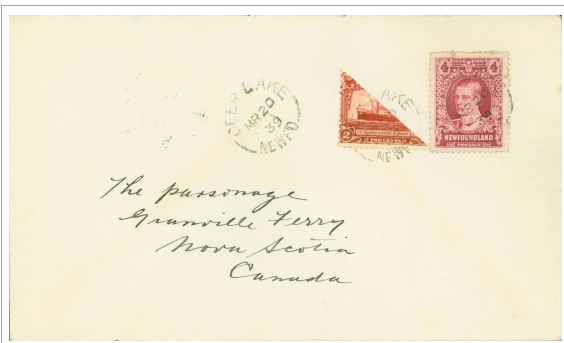 DEER LAKE
MR 20
39
NEWF'D.
LAKE
NEWF'D
2
TWO CENTS
4
4
NEWFOUNDLAND
The parsonage
Granville Ferry
Nova Scotia
Canada